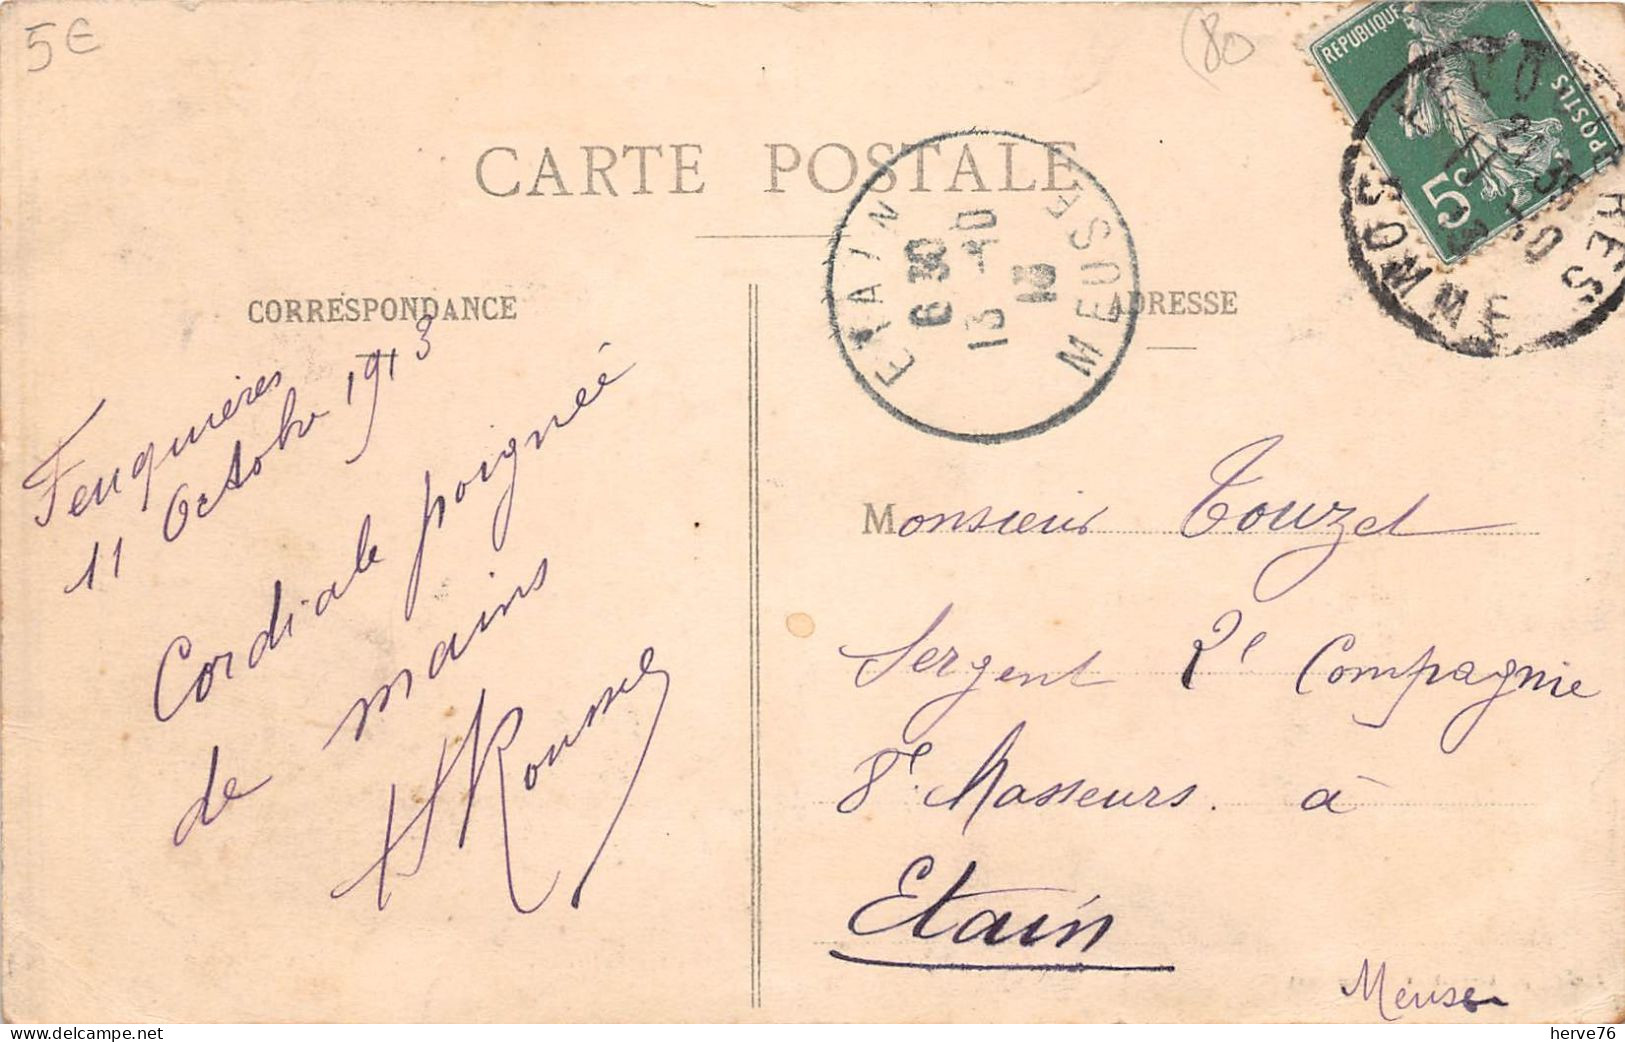 5€
80
RÉPUBLIQUE
POSTES
5c
CARTE POSTALE
ETAIN
6 30
13 -10
13
MEUSE
CORRESPONDANCE
ADRESSE
Feuquières
11 Octobre 1913
Cordiale poignée
de mains
Monsieur Touzet
Sergent 2e Compagnie
8e Chasseurs. à
Etain
Meuse
herve76